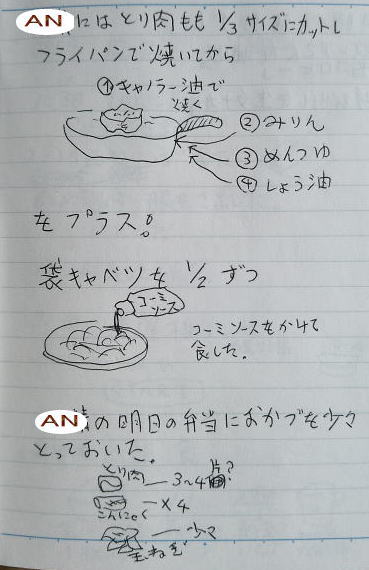 AN にはとり肉もも 1/3 サイズにカットし
フライパンで焼いてから
①キャノラー油で
焼く
②みりん
③めんつゆ
④しょう油
をプラス!
袋キャベツを 1/2 ずつ
コーミ
ソース
コーミソースをかけて
食した。
AN の明日の弁当におかづを少々
とっておいた。
とり肉
3~4片?
×4
こんにゃく
少々
玉ねぎ